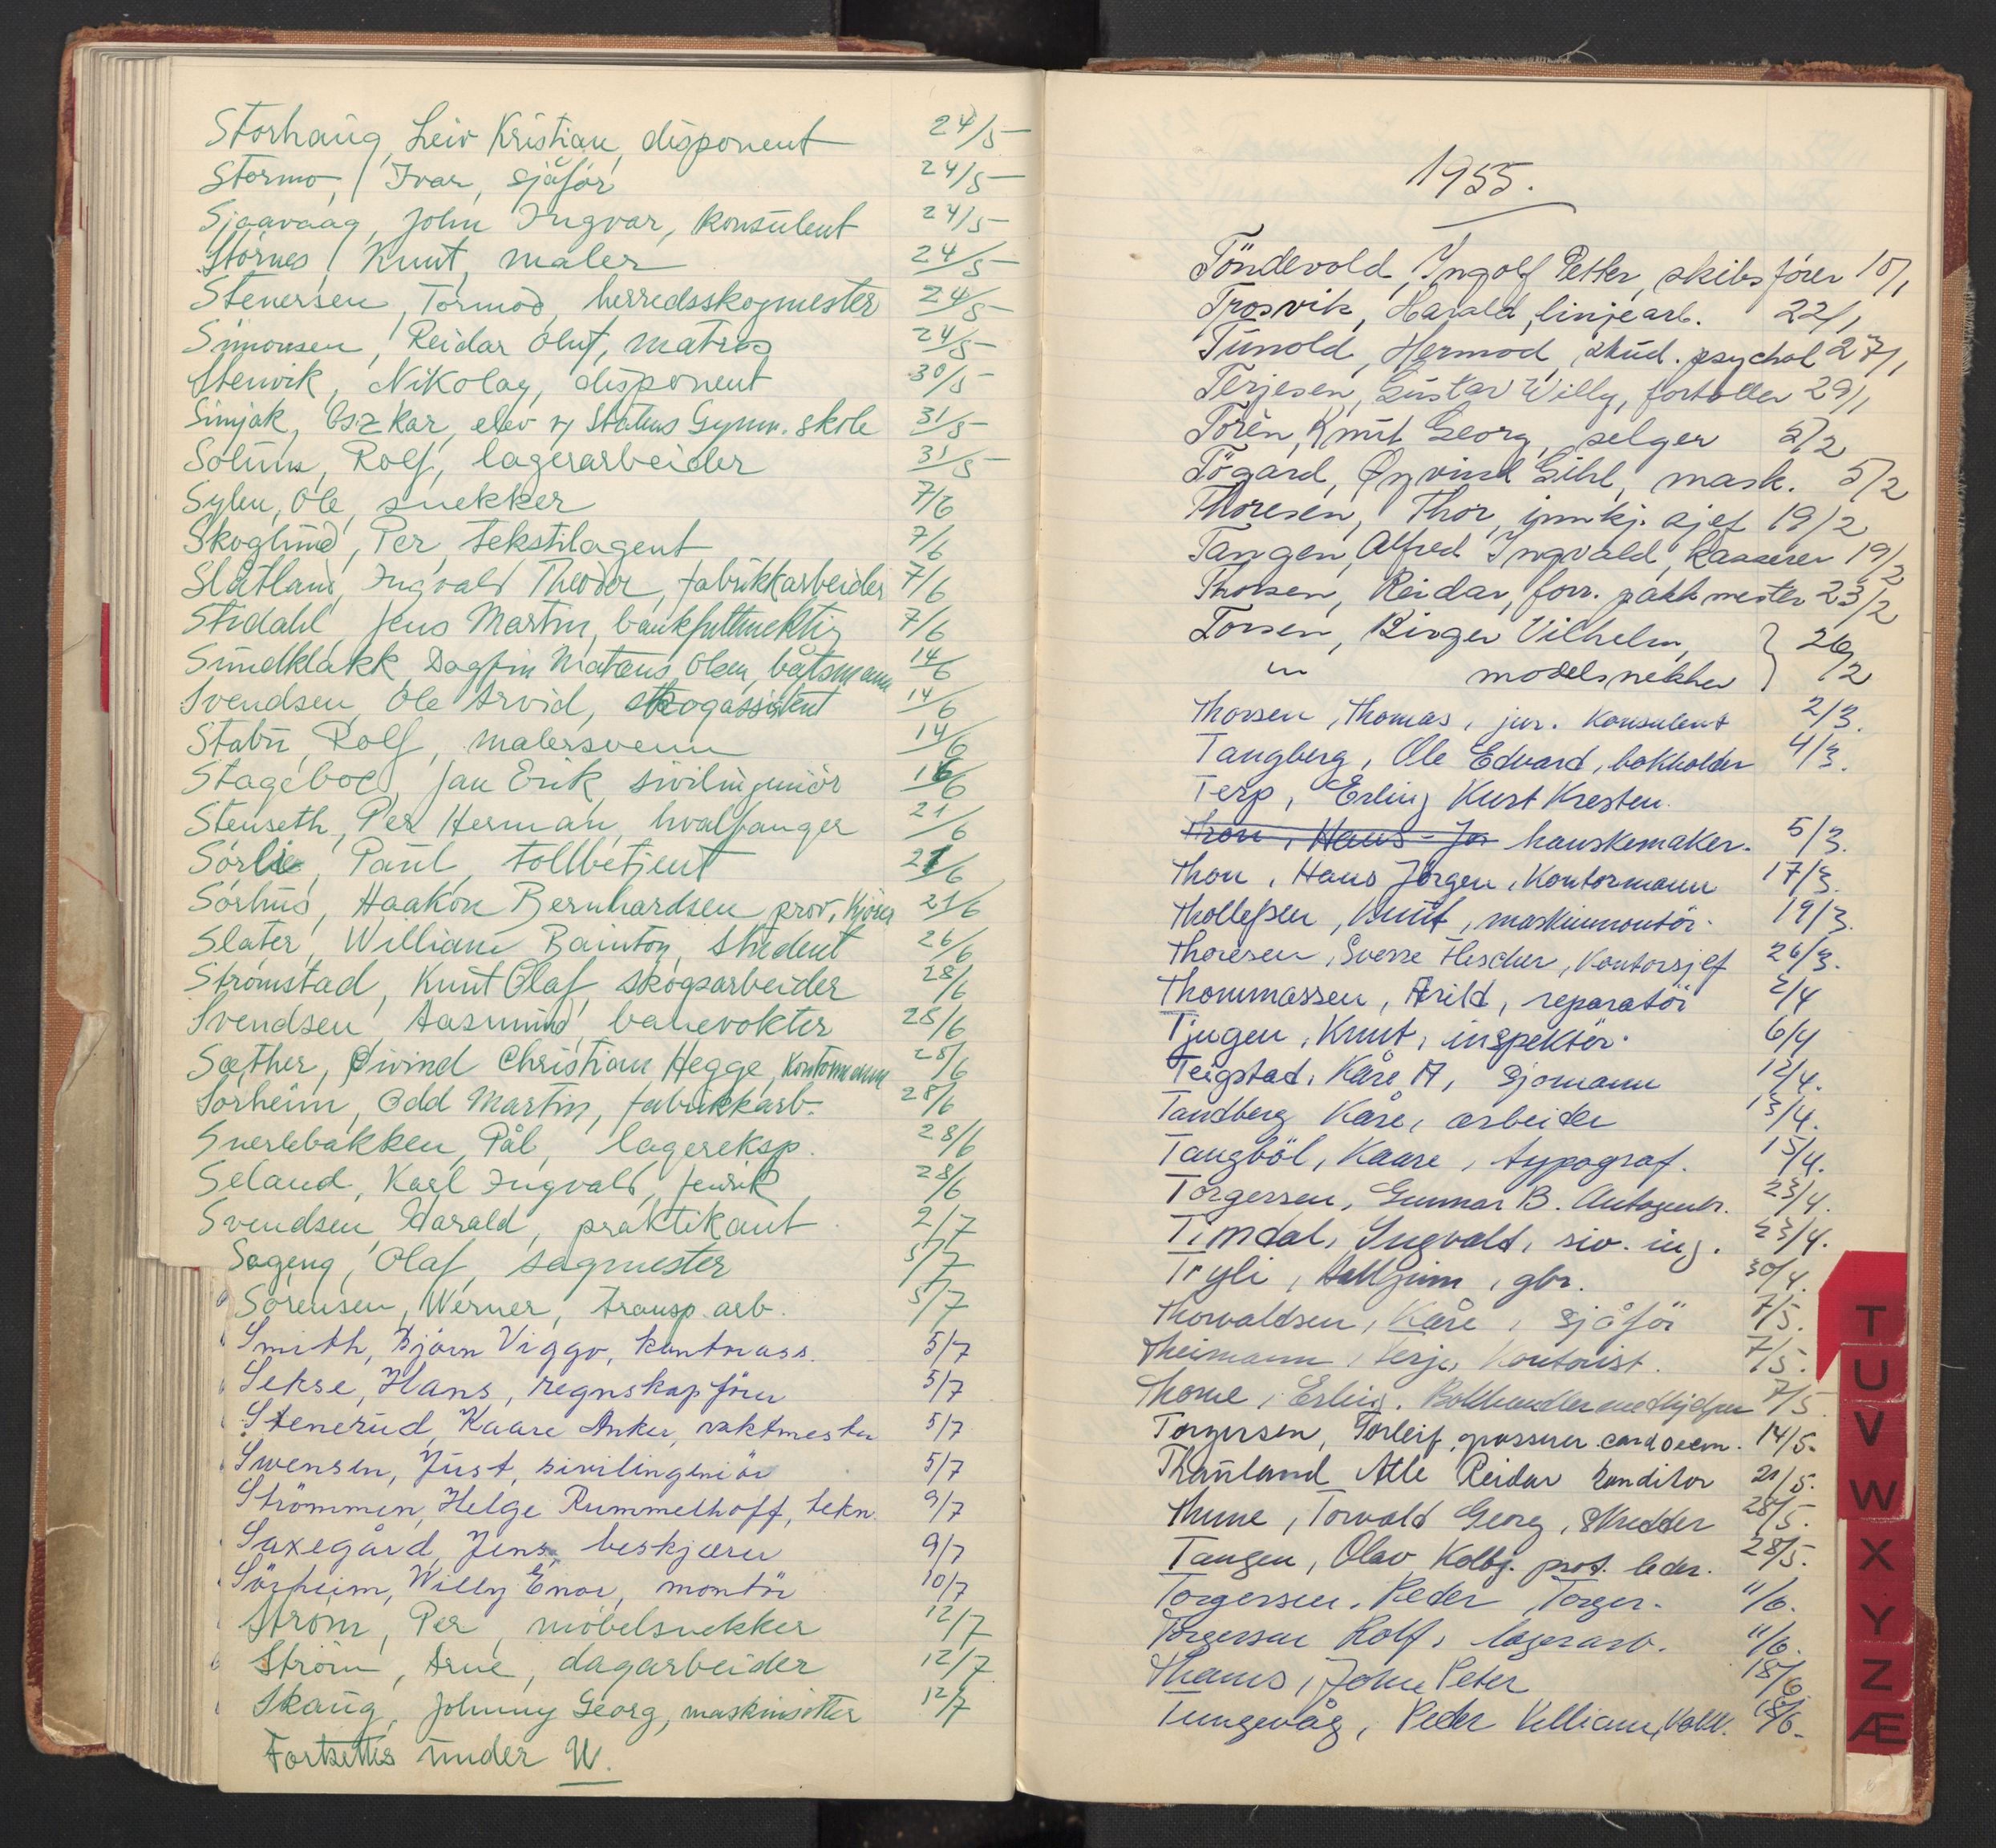 Storhaug, Leiv Kristian, disponent 24/5
Stormo, Ivar, sjåför 24/5
Sjaavaag, John Ingvar, konsulent 24/5
Störnes, Knut, maler 24/5
Stenersen, Tormod, herredsskogmester 24/5
Simonsen, Reidar Oluf, matros 24/5
Stenvik, Nikolay, disponent 30/5
Simjak, Oszkar, elev v/ Statens Gymn. skole 31/5
Solum, Rolf, lagerarbeider 31/5
Sylen, Ole, snekker 7/6
Skoglund, Per, tekstilagent 7/6
Slåtland, Ingvald Theodor, fabrikkarbeider 7/6
Stidahl, Jens Martin, bankfullmektig 7/6
Sundklakk, Dagfin Mateus Olsen, båtsmann 14/6
Svendsen, Ole Arvid, skogassistent 14/6
Stabu, Rolf, malersvenn 14/6
Stageboe, Jan Erik, sivilingeniör 16/6
Stenseth, Per Herman, hvalfanger 21/6
Sörlie, Paul, tollbetjent 21/6
Sörhus, Haakon Bernhardsen, prov. kjörer 21/6
Slater, William Bainton, student 26/6
Strömstad, Knut Olaf, skogsarbeider 28/6
Svendsen, Aasmund, banevokter 28/6
Sæther, Øivind Christian Hegge, kontormann 28/6
Sörheim, Odd Martin, fabrikkarb. 28/6
Sverlebakken, Pål, lagereksp. 28/6
Seland, Karl Ingvald, fenrik 28/6
Svendsen, Harald, praktikant 2/7
Sageng, Olaf, sagmester 5/7
Sörensen, Werner, transp. arb. 5/7
Smith, Björn Viggo, kontrass. 5/7
Sekse, Hans, regnskapförer 5/7
Stenerud, Kaare Anker, vaktmester 5/7
Swensen, Just, sivilingeniör 5/7
Strömmen, Helge Rummelhoff, tekn. 9/7
Saxegård, Jens, beskjærer 9/7
Sörheim, Willy Einar, montör 10/7
Ström, Per, möbelsnekker 12/7
Ström, Arne, dagarbeider 12/7
Skaug, Johnny Georg, maskinsetter 12/7
Fortsettes under W.
1955.
Töndevold, Ingolf Petter, skibsförer 10/1
Trosvik, Harald, linjearb. 22/1
Tunold, Hermod, stud. psychol 27/1
Terjesen, Gustav Willy, fortoller 29/1
Torèn, Knut Georg, selger 5/2
Tögard, Øyvind Gihl, mask. 5/2
Thoresen, Thor, innkj. sjef 19/2
Tangen, Alfred Ingvald, kasserer 19/2
Thorsen, Reidar, forr. pakkmester 23/2
Torsen, Birger Vilhelm, 26/2
modelsnekker
Thorsen, Thomas, jur. konsulent 2/3.
Tangberg, Ole Edvard, bokholder 4/3.
Terp, Erling Kurt Kresten.
Thon, Hans-Jø hanskemaker. 5/3.
Thon, Hans Jørgen, Kontormann 17/3.
Thollefsen, Knut, maskinmontör. 19/3.
Thoresen, Sverre Fischer, Kontorsjef 26/3.
Thommassen, Arild, reparatör 2/4
Tjugen, Knut, inspektör. 6/4
Teigstad, Kåre A, Sjømann 12/4.
Tandberg Kåre, arbeider 13/4.
Tangböl, Kaare, typograf. 15/4.
Torgersen, Gunnar B. Autogentr. 23/4.
Timdal, Ingvald, siv. ing. 23/4.
Tryli, Hallgrim, gbr. 30/4.
Thorvaldsen, Kåre, Sjåför 7/5.
Theimann, Terje, Kontorist. 7/5.
Thome, Erling. Bokhandlermedhjelper 7/5.
Torgersen, Torleif, grosserer cand oecon. 14/5.
Thauland Atle Reidar konditor 21/5.
Thune, Torvald Georg, Skredder 28/5.
Tangen, Olav Kolbj. prod. leder. 28/5.
Torgersen, Peder Torger. 11/6.
Torgersen Rolf, lagerarb. 11/6.
Thams, John Peter 18/6.
Tungevåg, Peder Villiam, 18/6.
T
U
V
W
X
Y
Z
Æ